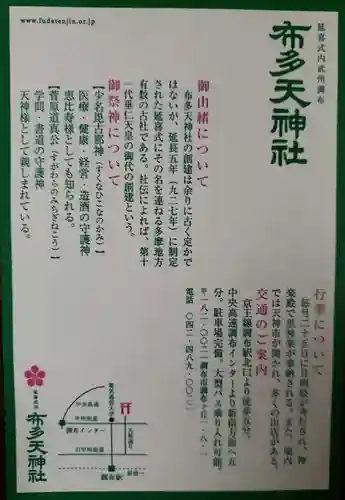 www.fudatenjin.or.jp
延喜式内武州調布
布多天神社
御由緒について
布多天神社の創建は余りに古く定かで
はないが、延長五年（九二七年）に制定
された延喜式にその名を連ねる多摩地方
有数の古社である。社伝によれば、第十
一代垂仁天皇の御代の創建という。
御祭神について
【少名毘古那神（すくなひこなのかみ）】
医療・健康・経営・造酒の守護神
恵比寿様としても知られる。
【菅原道真公（すがわらのみちざねこう）】
学問・書道の守護神
天神様として親しまれている。
行事について
毎月二十五日に月例祭が斉行され、神
楽殿で里神楽が奉納される。また、境内
では天神市が開かれ、多くの出店がある。
交通のご案内
京王線調布駅北口より徒歩五分。
中央高速調布インターより新宿方面へ五
分。駐車場完備。大型バス乗り入れ可能。
〒一八二-〇〇二二 調布市調布ヶ丘一-八-一
電話 〇四二-四八九-〇〇二二
中央高速
甲州街道
調布インター
旧甲州街道
調布駅
天神通り
新宿→
布多天神社